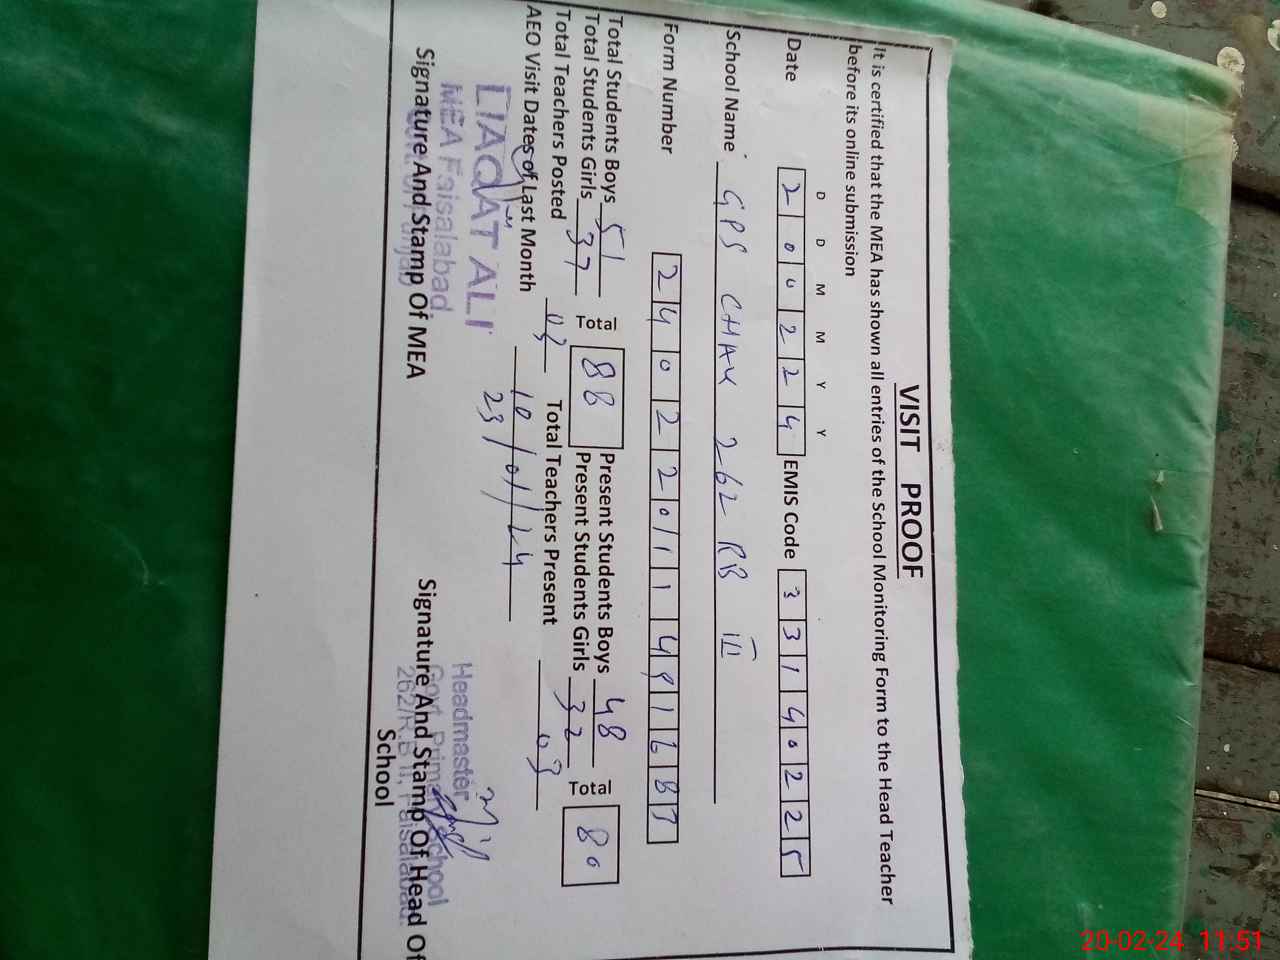 VISIT PROOF
It is certified that the MEA has shown all entries of the School Monitoring Form to the Head Teacher
before its online submission
D D M M Y Y
Date 2 0 0 2 2 4 EMIS Code 3 3 1 4 0 2 2 5
School Name GPS CHAK 262 RB III
Form Number 2 4 0 2 2 0 1 1 1 4 9 1 6 8 7
Total Students Boys 51 Total 88 Present Students Boys 48 Total 80
Total Students Girls 37 Present Students Girls 32
Total Teachers Posted 03 Total Teachers Present 03
AEO Visit Dates of Last Month 10/01/24
23/
LIAQAT ALI
MEA Faisalabad
Signature And Stamp Of MEA
Headmaster
Govt. Primary School
262/R.B Faisalabad.
Signature And Stamp Of Head Of
School
20-02-24 11:51